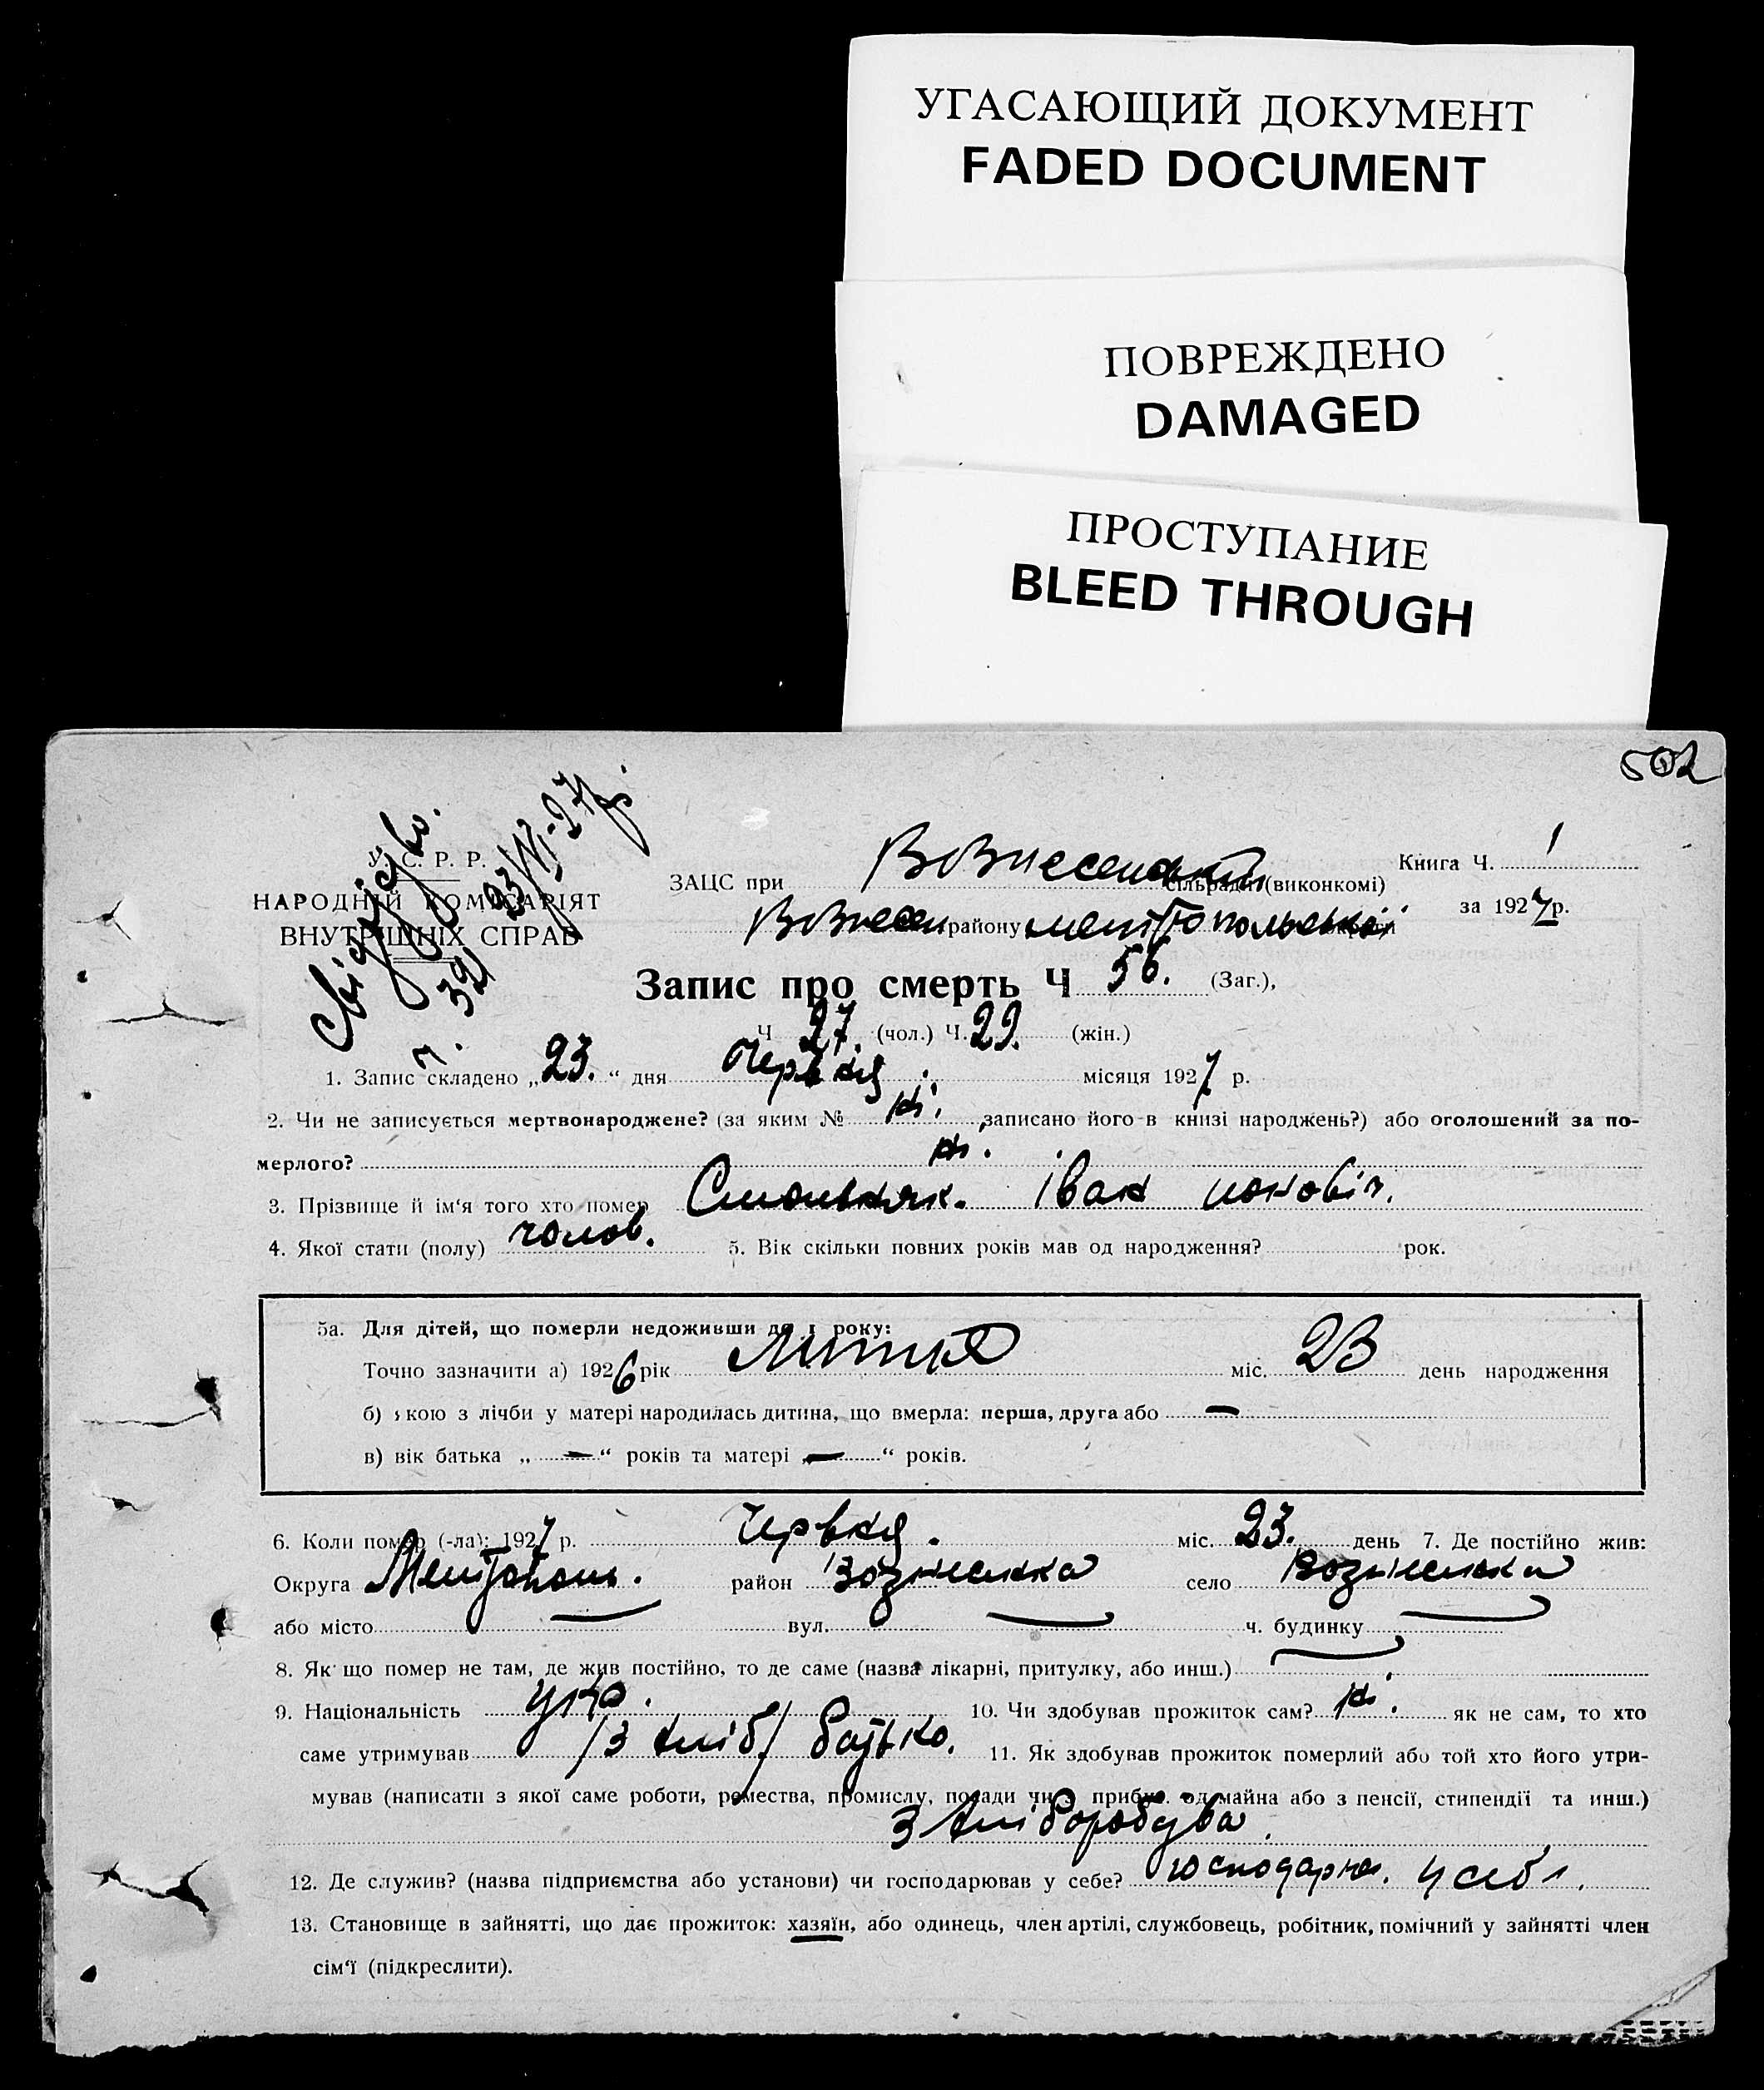 УГАСАЮЩИЙ ДОКУМЕНТ
FADED DOCUMENT
ПОВРЕЖДЕНО
DAMAGED
ПРОСТУПАНИЕ
BLEED THROUGH
502
У. С. Р. Р.
НАРОДНІЙ КОМІСАРІЯТ
ВНУТРІШНІХ СПРАВ
ч. 39 23/VI-27р.
ЗАЦС при Вознесенській сільраді (виконкомі)
Книга Ч. 1
району
за 1927 р.
Запис про смерть Ч 56. (Заг.),
Ч 27. (чол.) Ч. 29. (жін.)
1. Запис складено „23.“ дня Червня місяця 1927 р.
2. Чи не записується мертвонароджене? (за яким № ні. записано його в книзі народжень?) або оголошений за по-
мерлого? ні.
3. Прізвище й ім'я того хто помер Іван
4. Якої стати (полу) чолов. 5. Вік скільки повних років мав од народження? рок.
5а. Для дітей, що померли недоживши до 1 року:
Точно зазначити а) 1926 рік міс. 23 день народження
б) якою з лічби у матері народилась дитина, що вмерла: перша, друга або —
в) вік батька „—“ років та матері „—“ років.
6. Коли помер (-ла): 1927 р. Червня. міс. 23. день 7. Де постійно жив:
Округа Мелітополь. район Вознесенка село Вознесенка
або місто вул. ч. будинку
8. Як що помер не там, де жив постійно, то де саме (назва лікарні, притулку, або инш.)
9. Національність укр. 10. Чи здобував прожиток сам? ні. як не сам, то хто
саме утримував /з хліб/ батько. 11. Як здобував прожиток померлий або той хто його утри-
мував (написати з якої саме роботи, ремества, промислу, посади чи з прибут. од майна або з пенсії, стипендії та инш.)
З хліборобства.
12. Де служив? (назва підприємства або установи) чи господарював у себе? господарює. у себе.
13. Становище в зайнятті, що дає прожиток: хазяїн, або одинець, член артілі, службовець, робітник, помічний у зайнятті член
сім'ї (підкреслити).